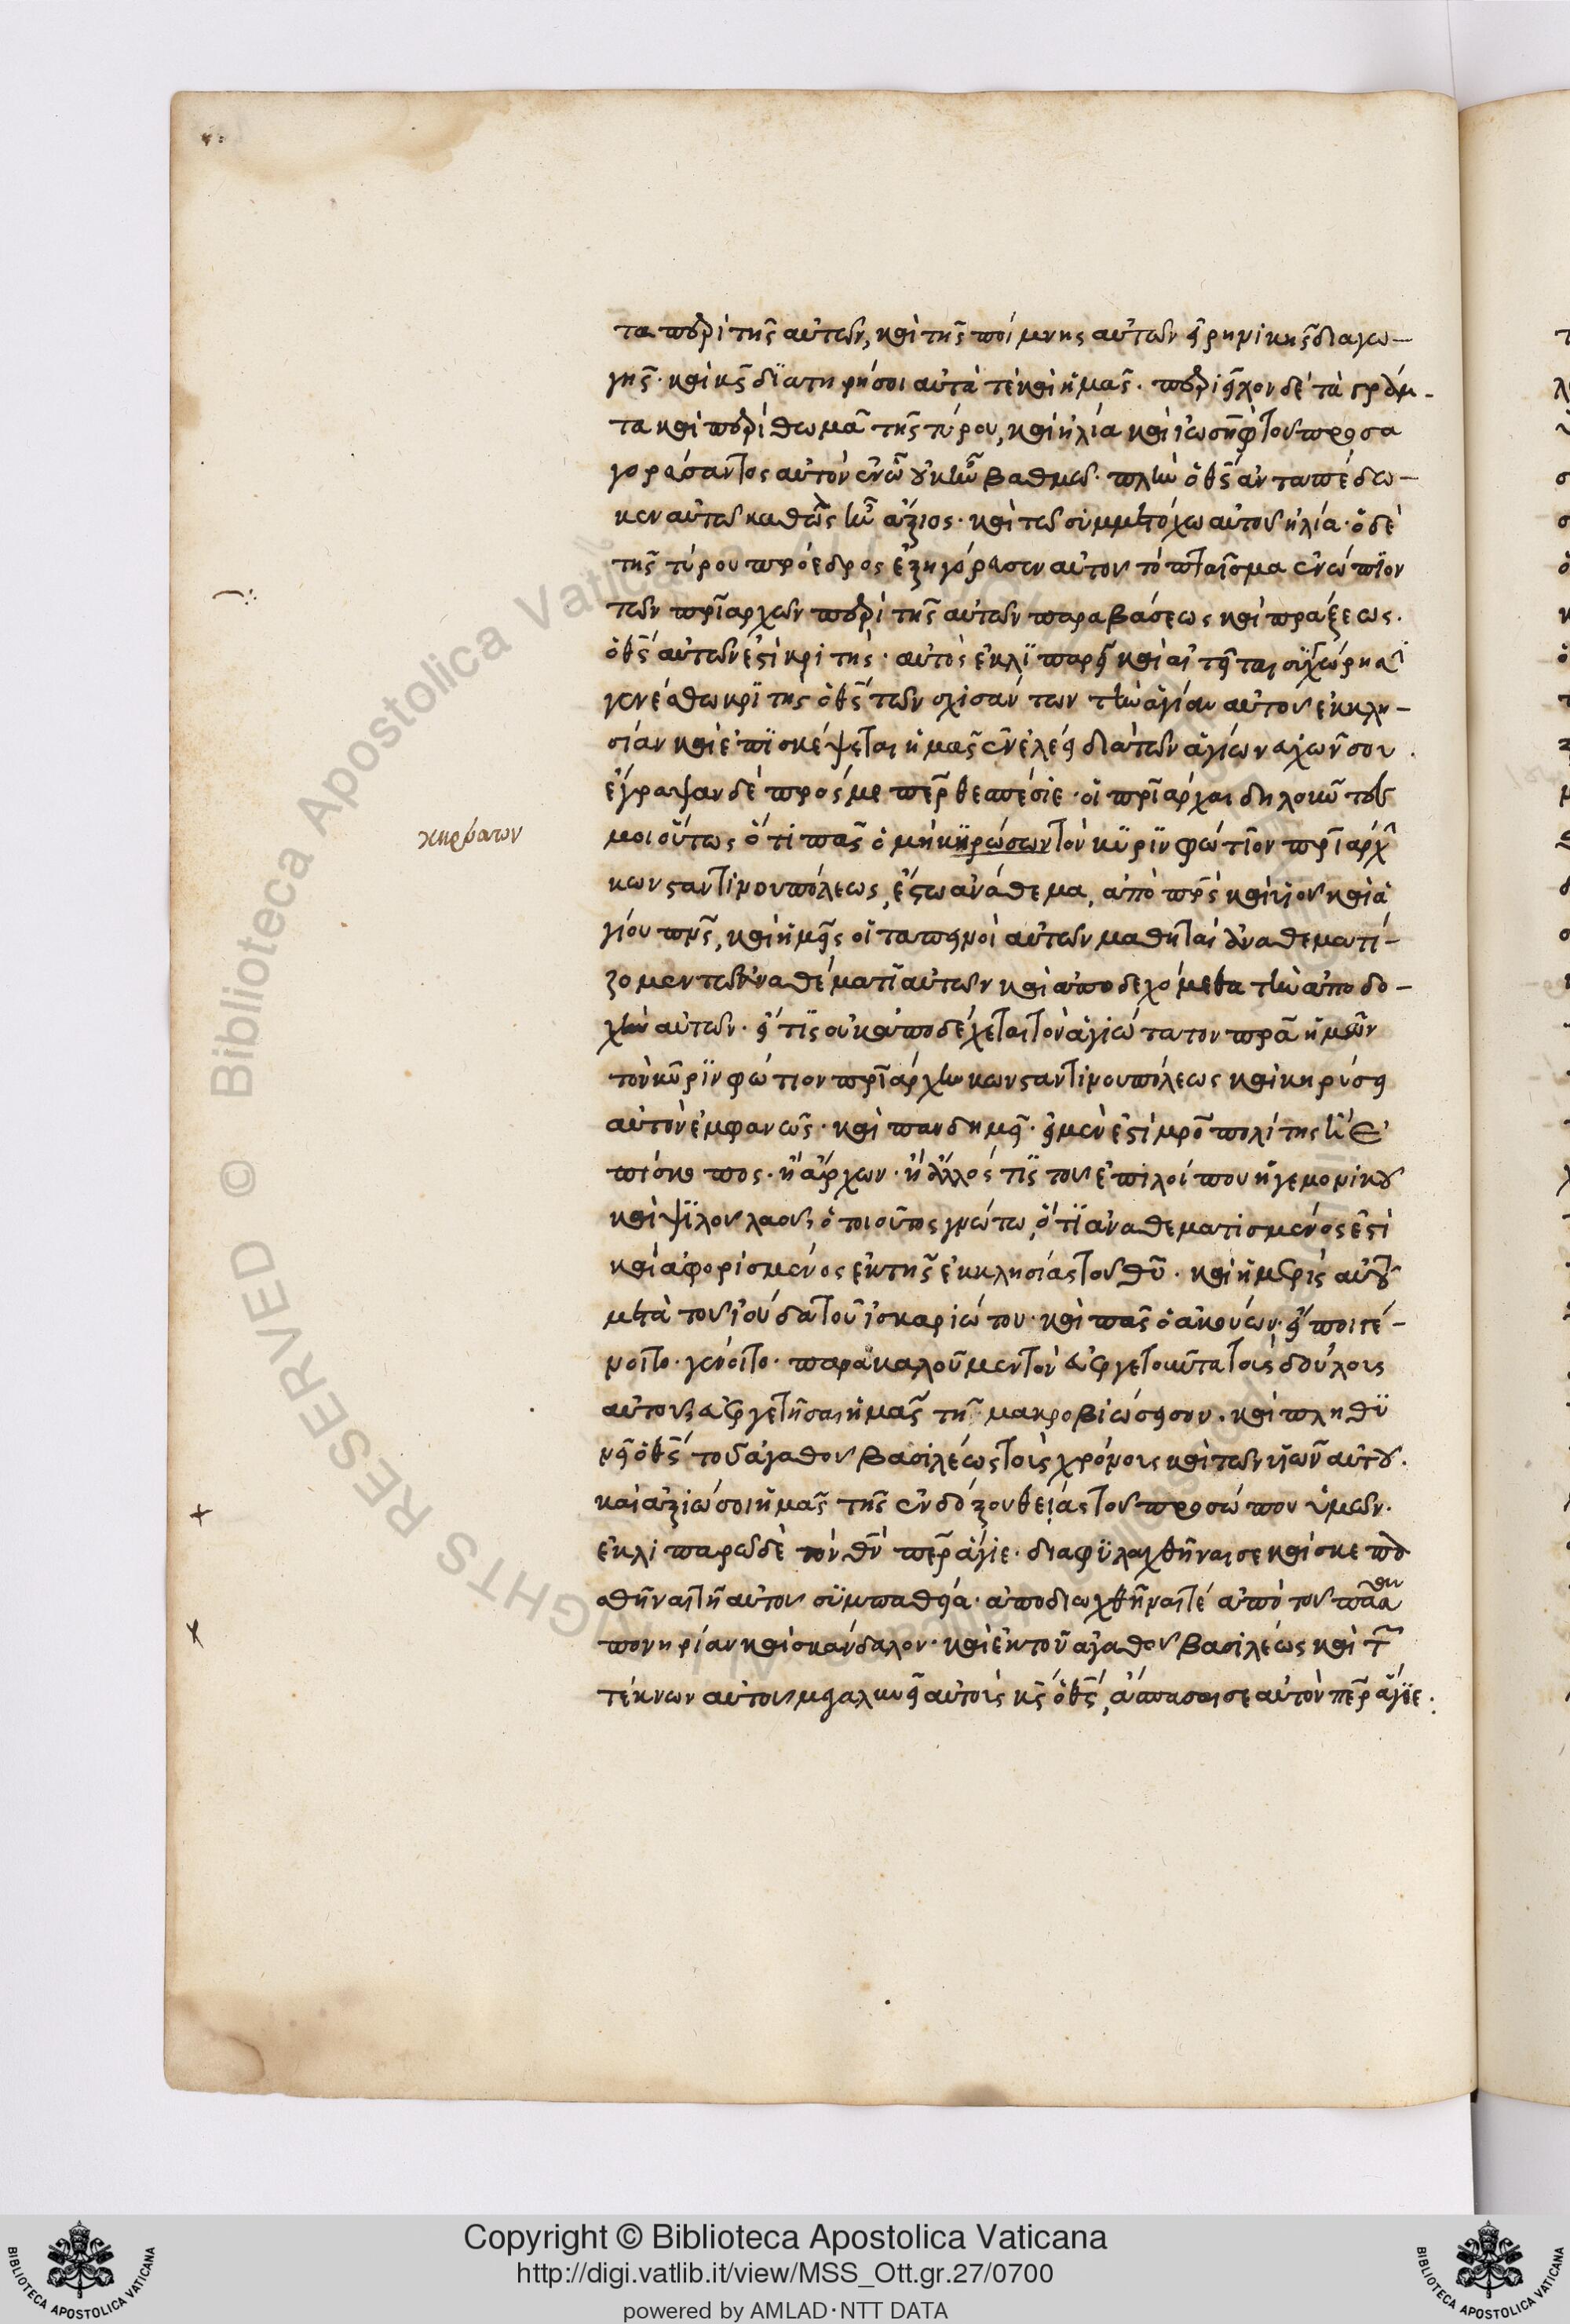 τα περὶ τῆς αὐτῶν, καὶ τῆς ποίμνης αὐτῶν εἰρηνικῆς διαγω–
γῆς· καὶ κς̄ διατηρήσοι αὐτὰ τὲ καὶ ἡμᾶς· περιεῖχον δὲ τὰ γράμ–
τα καὶ περὶ θωμᾶ τῆς τύρου, καὶ ἠλία καὶ ἰωσὴφ τοῦ προσα
γοράσαντος αὐτὸν ἐν ᾧ οὐκ ἦν βαθμῶ· πλὴν ὁ θς̄ ἀνταπέδω–
κεν αὐτῶ καθὼς ἦν ἄξιος· καὶ τῶ συμμετόχω αὐτοῦ ἠλία· ὁ δὲ
τῆς τύρου πρόεδρος ἐξηγόρασεν αὐτοῦ τὸ πταῖσμα ἐνώπϊον
τῶν πρῑαρχῶν περὶ τῆς αὐτῶν παραβάσεως καὶ πράξεως·
ὁ θς̄ αὐτῶν ἐστὶ κριτής· αὐτὸς ἐκλϊπαρεῖ καὶ αἰτεῖται
γενέσθω κρϊτὴς ὁ θς̄ τῶν σχισάντων τὴν ἁγίαν αὐτοῦ ἐκκλη–
σίαν καὶ ἐπϊσκέψεται ἡμᾶς ἐν ἐλέει διὰ τῶν ἁγίων εὐχῶν σου·
ἔγραψαν δὲ πρός με περ̄ θεασέσιε· οἱ πρῑάρχαι δηλοῦν
μοι οὕτως ὅτι πᾶς ὁ μὴ κϋρώσων τὸν κῦριν φώτιον πρῑάρχ
κωνσταντινουπόλεως, ἔστω ἀνάθεμα, ἀπὸ πρς̄ καὶ υἱοῦ καὶ ἁ
κηρύττων
γίου πνς̄, καὶ ἡμεῖς οἱ ταπεινοὶ αὐτῶν μαθηταὶ ἀναθεματί–
ζομεν τῶ ἀναθέματι αὐτῶν καὶ ἀποδεχόμεθα τὴν ἀποδο–
χὴν αὐτῶν· εἴ τϊς οὐκ ἀποδέχεται τὸν ἁγιώτατον πρᾱ ἡμῶν
τὸν κῦριν φώτιον πρῑάρχην κωνσταντινουπόλεως καὶ κηρύσει
αὐτὸν ἐμφανῶς· καὶ πανδημεῖ· εἰ μὲν ἐστὶ μρο̄πολίτης ἢ ἐ
πίσκοπος· ἢ ἄρχων· ἢ ἄλλός τϊς τοῦ ἐπιλοίπου ἡγεμονικοῦ
καὶ ψϊλοῦ λαοῦ, ὁ τοιοῦτος γνώτω, ὅτϊ ἀναθεματισμένος ἐστὶ
καὶ ἀφορισμένος ἐκ τῆς ἐκκλησίας τοῦ θῡ· καὶ ἡ μερὶς αὐτοῦ
μετὰ τοῦ ἰούδα τοῦ ἰσκαριώτου· καὶ πᾶς ὁ ἀκούων· εἴποι γέ–
νοιτο· γένοιτο· παρακαλοῦμεν τὸν εὐεργετοῦντα τοῖς δούλοις
αὐτοῦ, εὐεργετῆσαι ἡμᾶς τῇ μακροβιώσει σου· καὶ πληθϋ
νεῖ ὁ θς̄ τοῦ ἀγαθοῦ βασιλέως τοῖς χρόνοις καὶ τῶν υἱῶν αὐτοῦ·
καὶ ἀξιώσοι ἡμᾶς τῆς ἐνδόξου θείας τοῦ προσώπου ὑμῶν·
ἐκλιπαρῶ δὲ τὸν θν̄ περ̄ ἅγιε· διαφϋλαχθῆναι σε καὶ σκεπα
σθῆναι τῇ αὐτοῦ συμπαθεία· ἀποδιωχθῆναι τέ ἀπὸ τοῦ
πονηρίαν καὶ σκάνδαλον· καὶ ἐκ τοῦ ἀγαθοῦ βασιλέως καὶ τ
τέκνων αὐτοῦ μεγαλυνεῖ αὐτοῖς κς̄ ὁ θς̄, αὐτὸν περ̄ ἅγϊε·